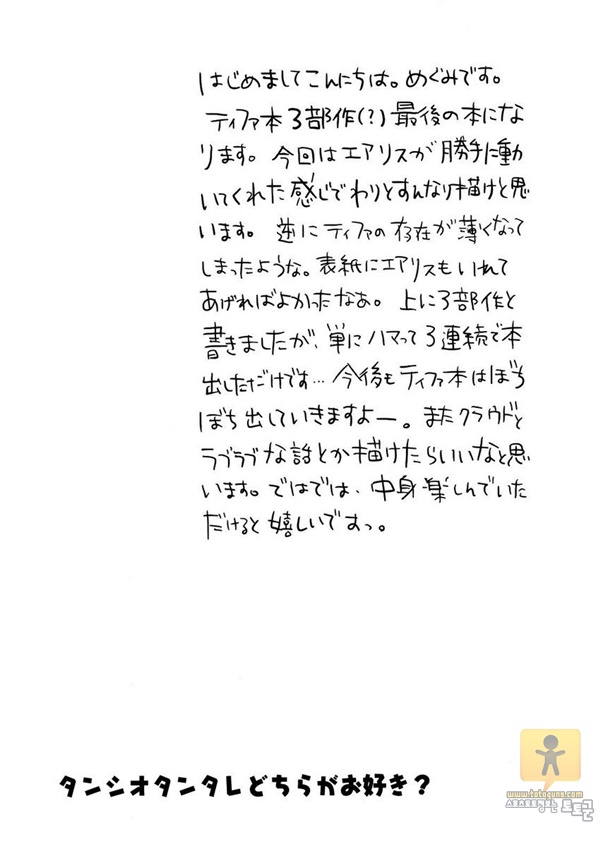 はじめましてこんにちは。めぐみです。
ティファ本3部作(?)最後の本にな
ります。今回はエアリスが勝手に動
いてくれた感じでわりとすんなり描けと思
います。逆にティファの存在が薄くなって
しまったような。表紙にエアリスもいれて
あげればよかったなぁ。上に3部作と
書きましたが、単にハマって3連続で本
出しただけです…今後もティファ本はぼち
ぼち出していきますよー。またクラウドと
ラブラブな話とか描けたらいいなと思
います。ではでは、中身楽しんでいた
だけると嬉しいですっ。
タンシオタンタレどちらがお好き?
www.totoguns.com
토토군